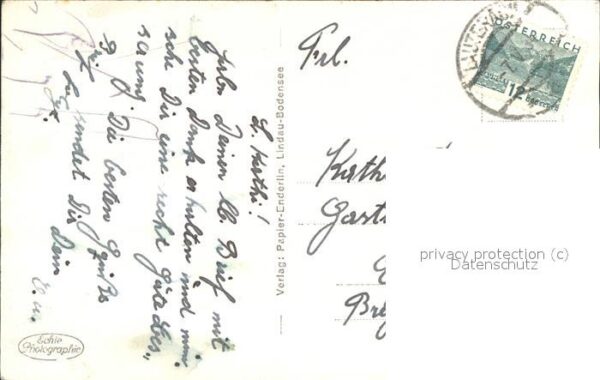 L. Kathi!
Habe Deinen lb Brief mit
besten Dank erhalten und wün
sche Dir eine recht gute Bes„
serung.
Die besten Grüße
sendet Dir Dein
Echte
Photographie
Verlag: Papier-Enderlin, Lindau-Bodensee
Frl.
Kath
Gast
Br
ÖSTERREICH
12
GROSCHEN
privacy protection (c)
Datenschutz